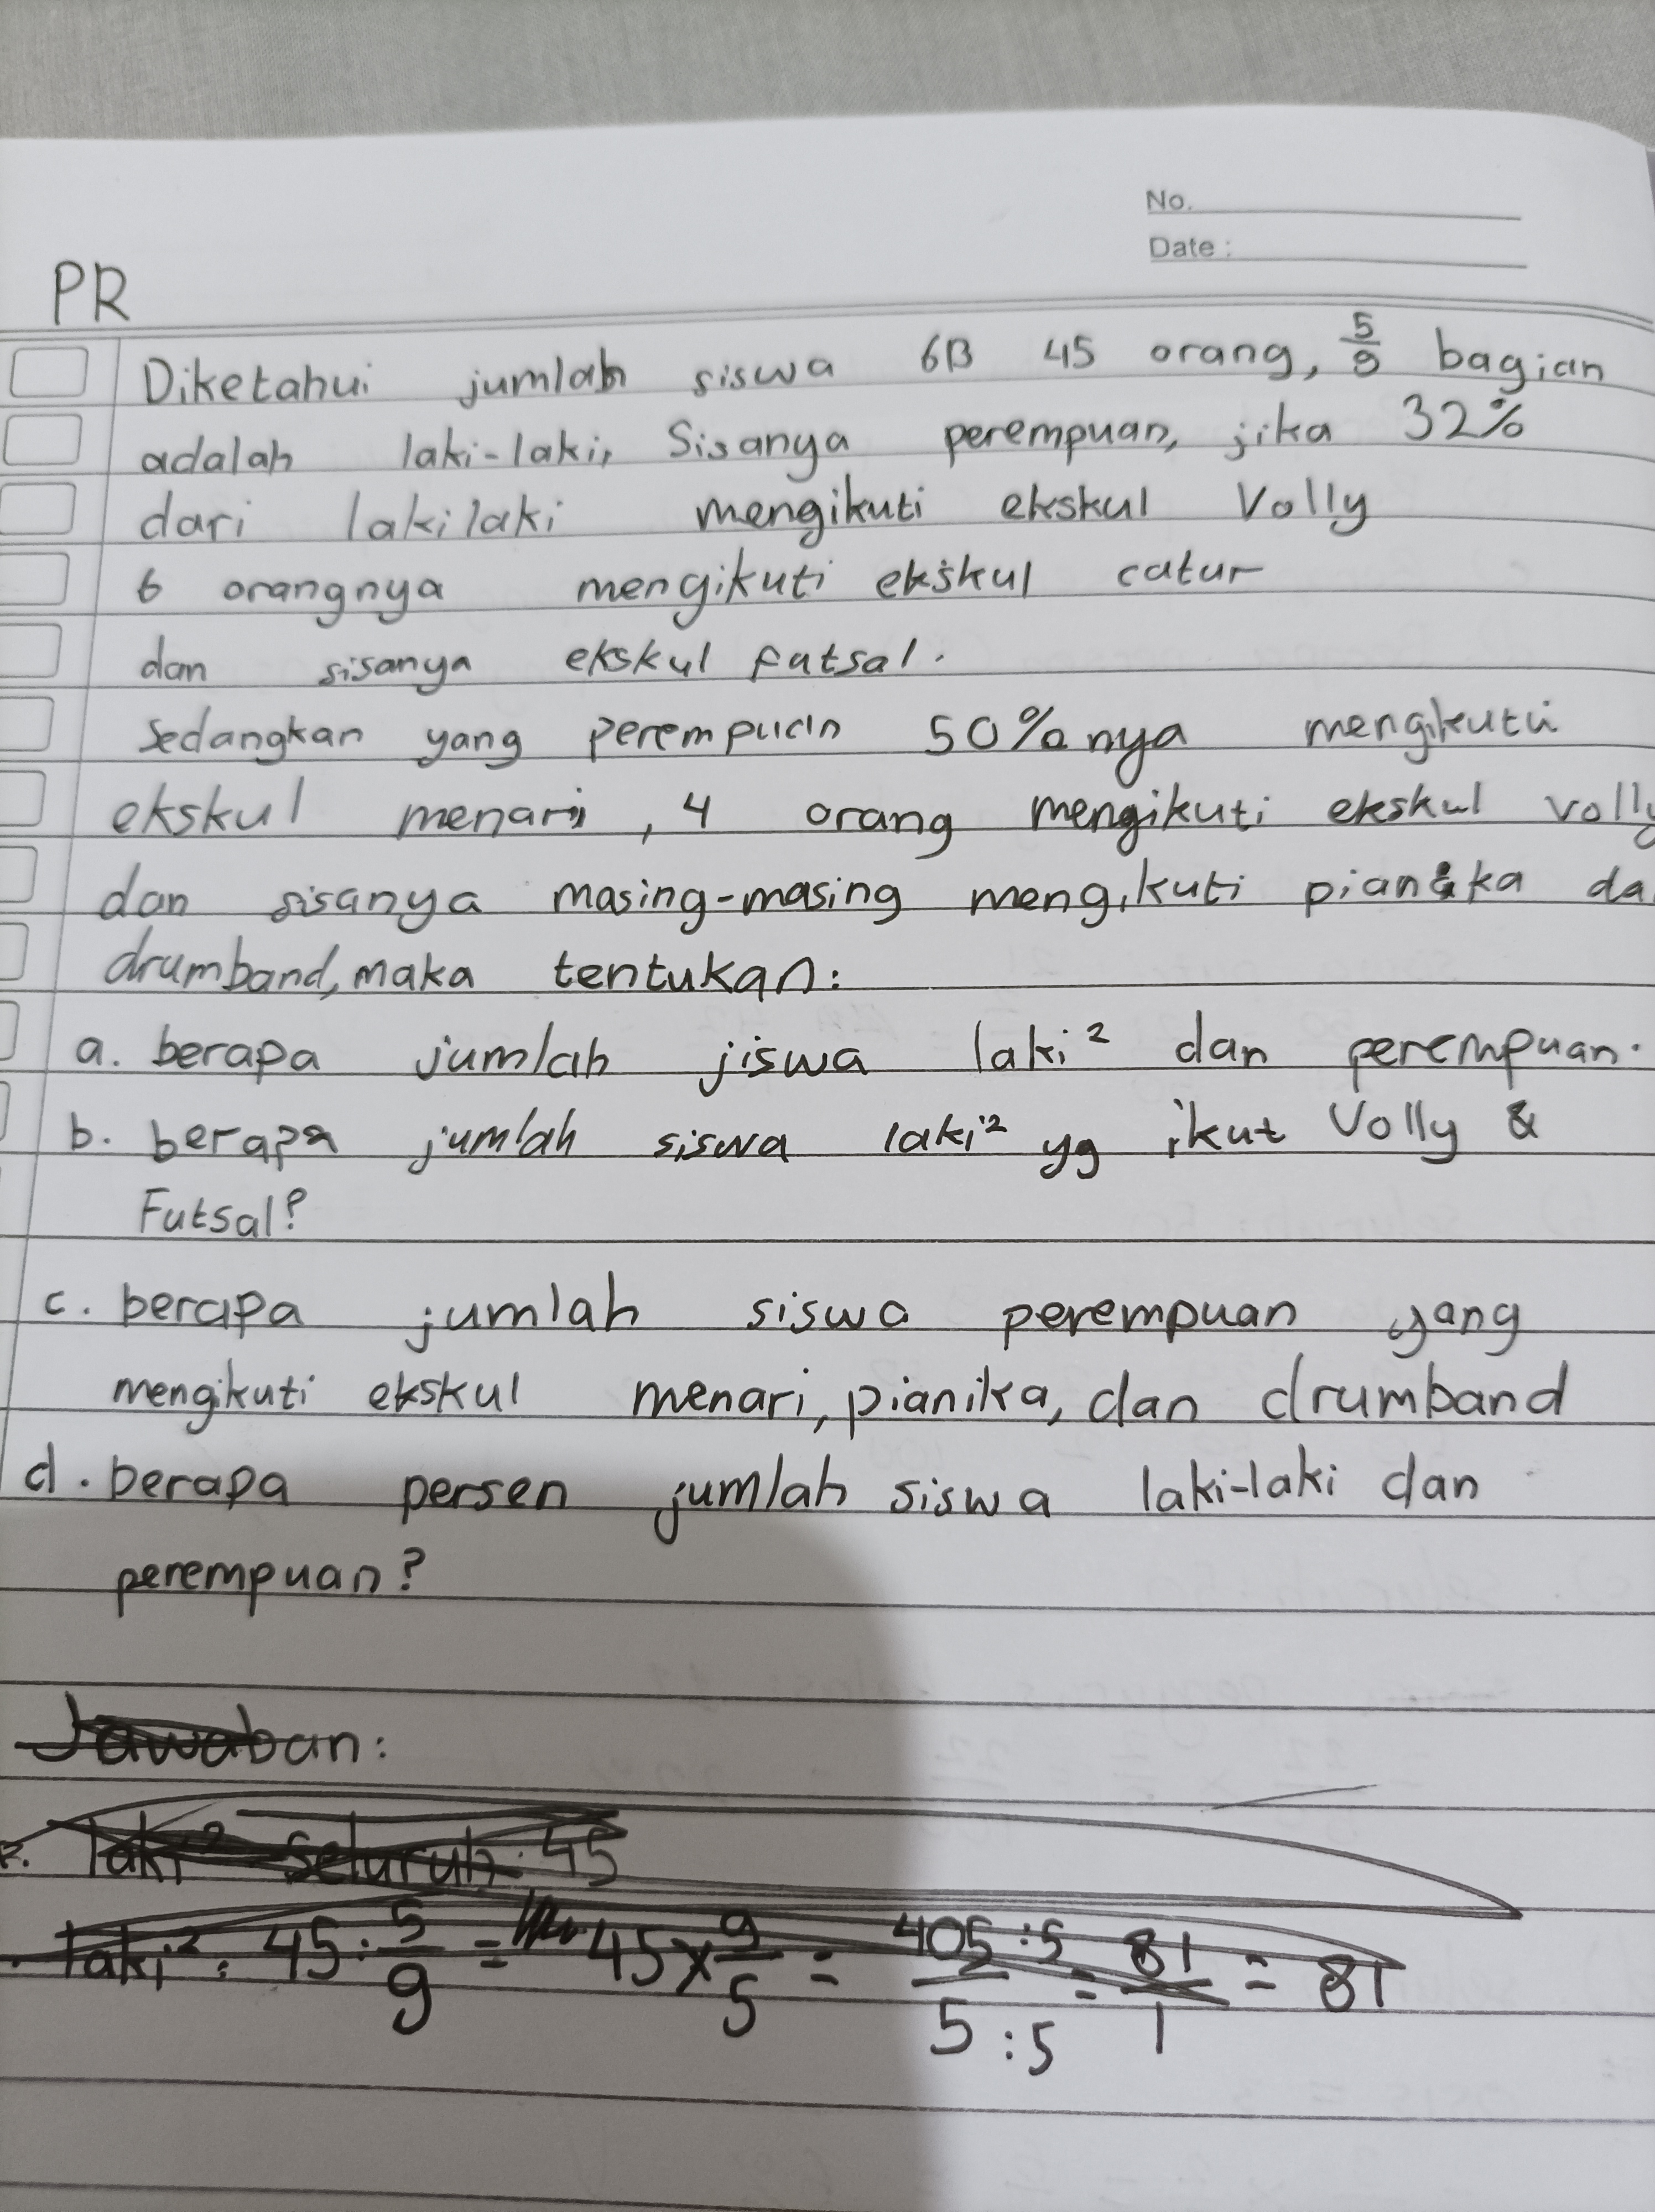 No.
Date :
PR
Diketahui jumlah siswa 6B 45 orang, 5/9 bagian
adalah laki-laki, Sisanya perempuan, jika 32%
dari lakilaki mengikuti ekskul Volly
6 orangnya mengikuti ekskul catur
dan sisanya ekskul futsal.
Sedangkan yang perempuan 50% nya mengikuti
ekskul menari, 4 orang mengikuti ekskul volly
dan sisanya masing-masing mengikuti pianika da
drumband, maka tentukan:
a. berapa jumlah jiswa laki² dan perempuan.
b. berapa jumlah siswa laki² yg ikut Volly &
Futsal?
c. berapa jumlah siswa perempuan yang
mengikuti ekskul menari, pianika, dan drumband
d. berapa persen jumlah siswa laki-laki dan
perempuan?
Jawaban:
laki² seluruh: 45
laki²: 45 : 5/9 = 45 x 9/5 = 405 :5 / 5 :5 = 81/1 = 81